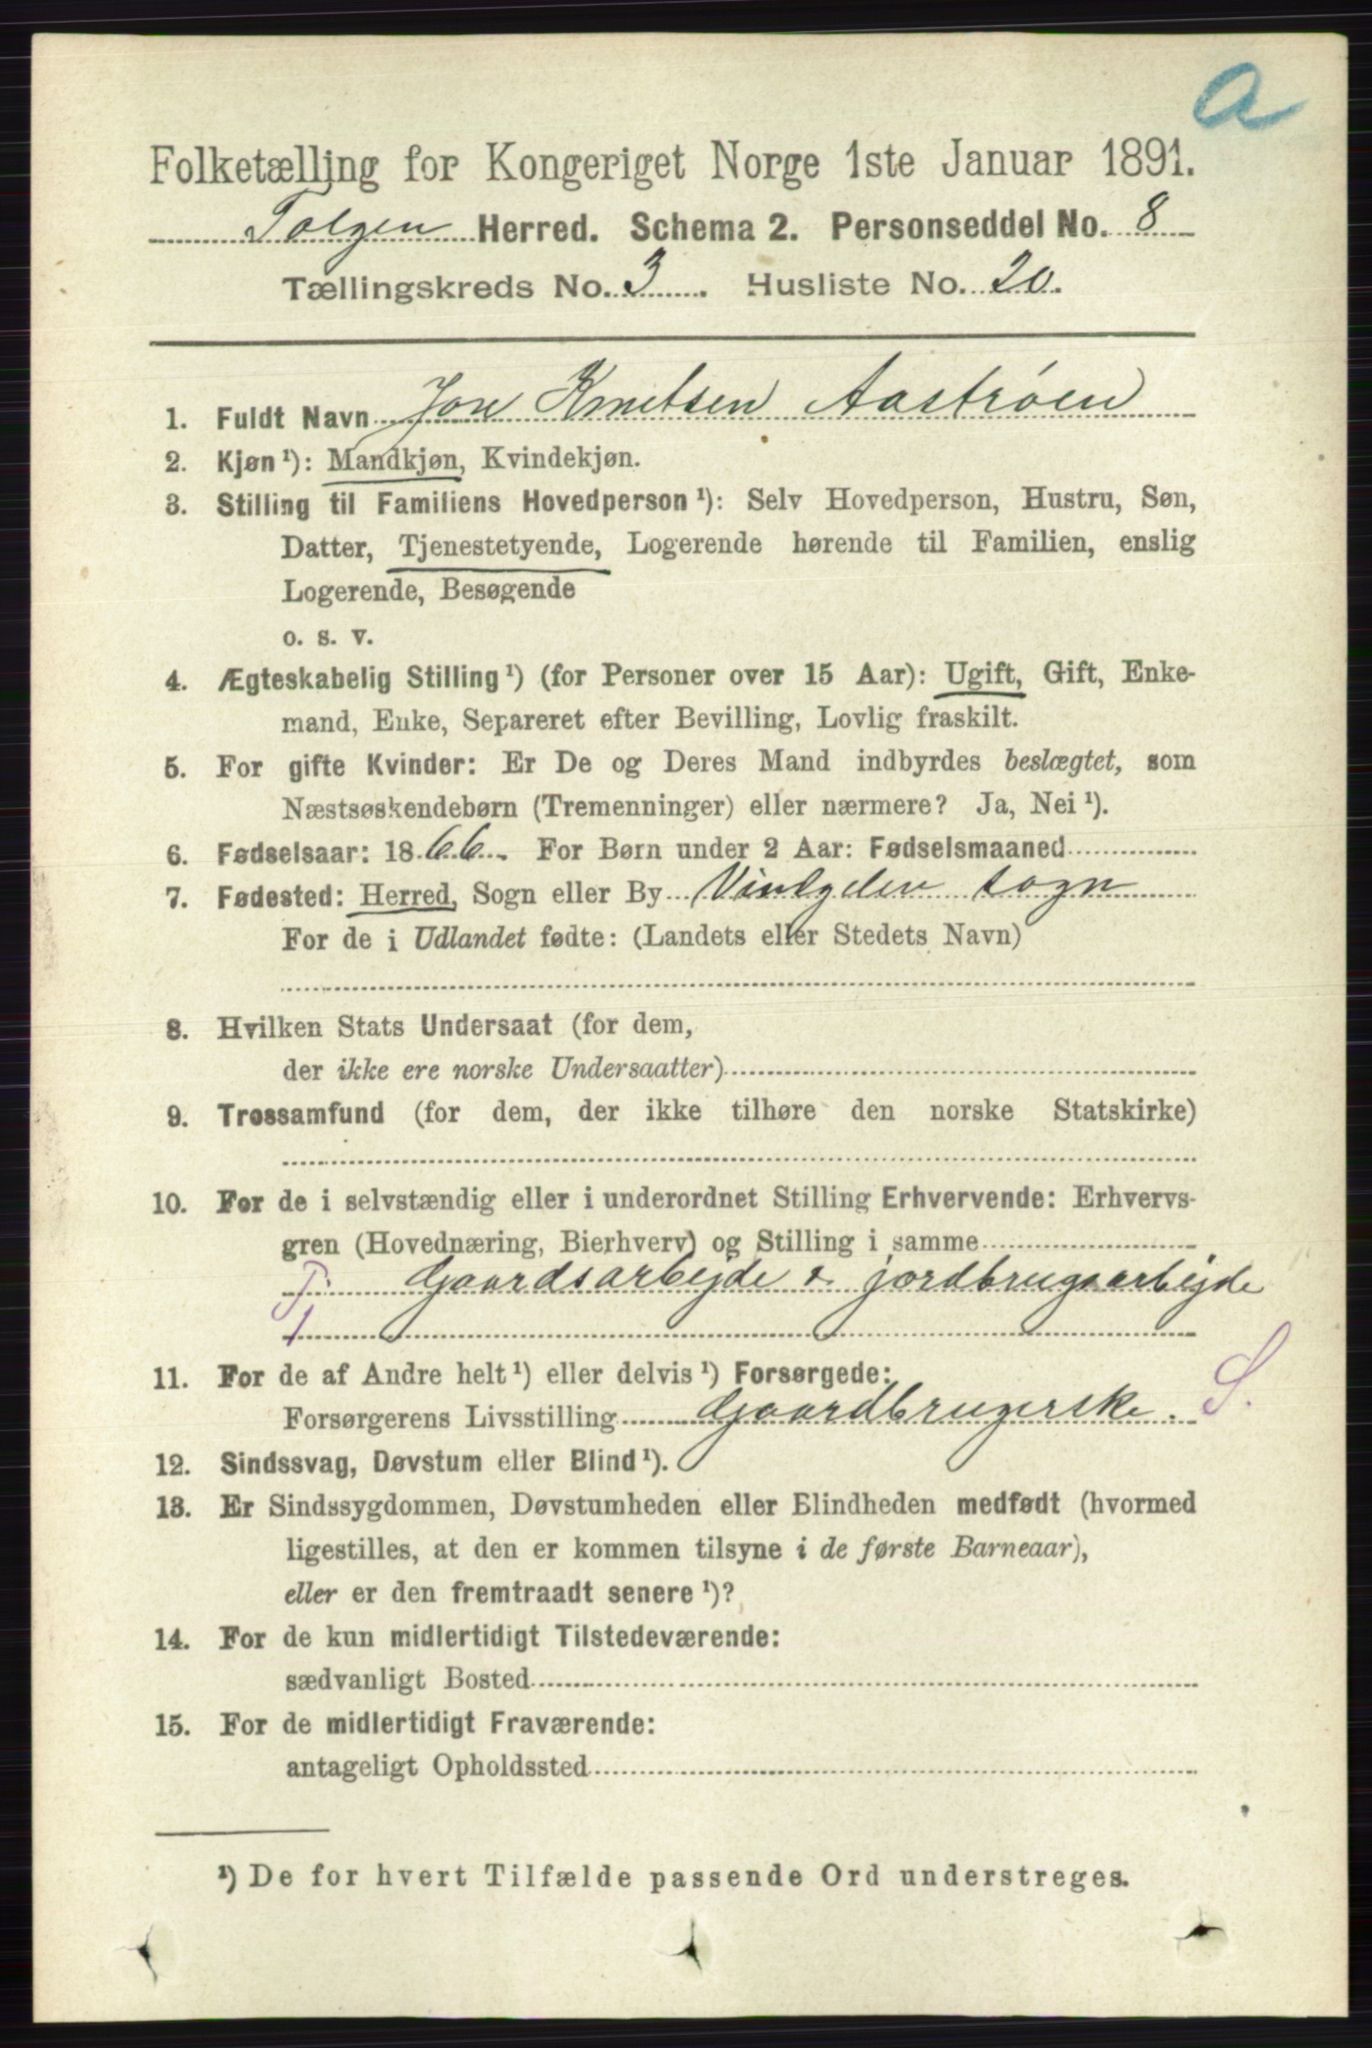 a
Folketælling for Kongeriget Norge 1ste Januar 1891.
Tolgen Herred. Schema 2. Personseddel No. 8
Tællingskreds No. 3. Husliste No. 20.
1. Fuldt Navn Jon Knutsen Aastrøen
2. Kjøn¹): Mandkjøn, Kvindekjøn.
3. Stilling til Familiens Hovedperson¹): Selv Hovedperson, Hustru, Søn,
Datter, Tjenestetyende, Logerende hørende til Familien, enslig
Logerende, Besøgende
o. s. v.
4. Ægteskabelig Stilling¹) (for Personer over 15 Aar): Ugift, Gift, Enke-
mand, Enke, Separeret efter Bevilling, Lovlig fraskilt.
5. For gifte Kvinder: Er De og Deres Mand indbyrdes beslægtet, som
Næstsøskendebørn (Tremenninger) eller nærmere? Ja, Nei¹).
6. Fødselsaar: 1866. For Børn under 2 Aar: Fødselsmaaned
7. Fødested: Herred, Sogn eller By Vingelen sogn
For de i Udlandet fødte: (Landets eller Stedets Navn)
8. Hvilken Stats Undersaat (for dem,
der ikke ere norske Undersaatter)
9. Trossamfund (for dem, der ikke tilhøre den norske Statskirke)
10. For de i selvstændig eller i underordnet Stilling Erhvervende: Erhvervs-
gren (Hovednæring, Bierhverv) og Stilling i samme
Gaardsarbejde & jordbrugsarbejde
11. For de af Andre helt¹) eller delvis¹) Forsørgede:
Forsørgerens Livsstilling Gaardbrugerske. S.
12. Sindssvag, Døvstum eller Blind¹).
13. Er Sindssygdommen, Døvstumheden eller Blindheden medfødt (hvormed
ligestilles, at den er kommen tilsyne i de første Barneaar),
eller er den fremtraadt senere¹)?
14. For de kun midlertidigt Tilstedeværende:
sædvanligt Bosted
15. For de midlertidigt Fraværende:
antageligt Opholdssted
¹) De for hvert Tilfælde passende Ord understreges.